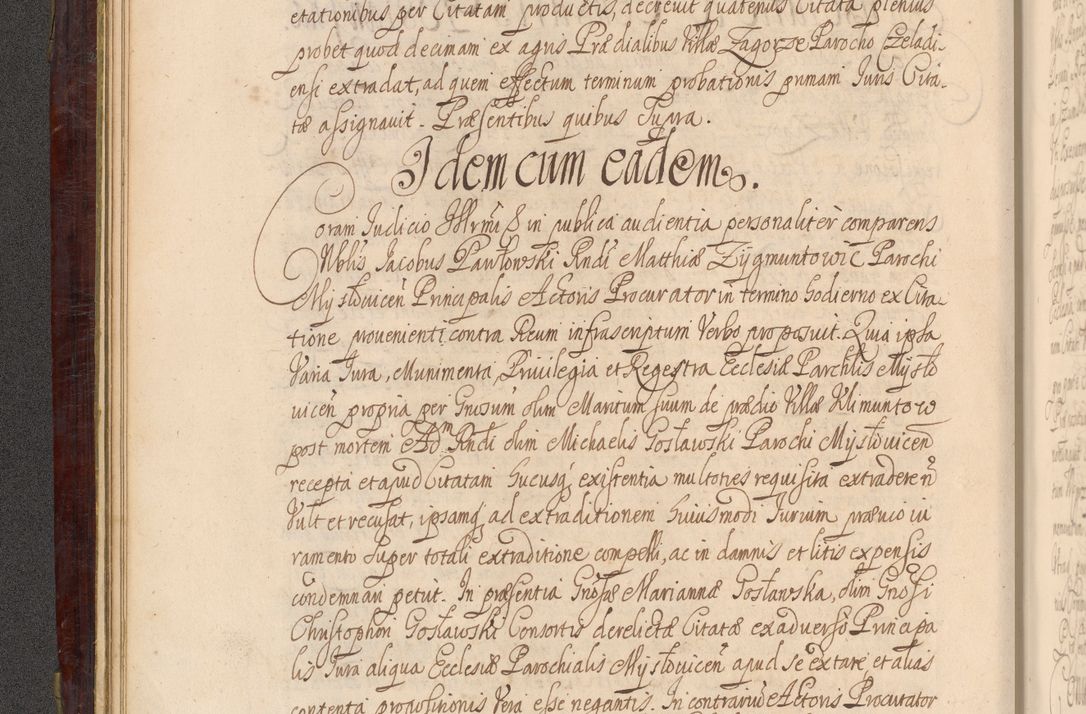 etationibus per Citatam productis, decrevit quatenus Citata plenius
probet quod decimam ex agris Prædialibus Villæ Zagorze Parocho Czeladi-
ensi extradat, ad quem effectum terminum probationis primam Iuris Cita-
tæ assignavit. Præsentibus quibus Supra.
Idem cum eadem.
Coram Iudicio Illrmi & in publica audientia personaliter comparens
Nblis Jacobus Pawłowski Rndi Matthiæ Zygmuntowic Parochi
Mysłovicen Principalis Actoris Procurator in termino hodierno ex Cita-
tione provenienti contra Ream infrascriptam Verbo proposuit. Quia ipsa
Varia Iura, Munimenta, Privilegia et Regestra Ecclesiæ Parchlis Mysło
vicen propria per Gnosum olim Maritum suum de prædio Villæ Klimuntow
post mortem Adm Rndi olim Michaelis Gosławski Parochi Mysłovicen
recepta et apud Citatam hucusq existentia multoties requisita extradere n
Vult et recusat, ipsamq ad extraditionem huiusmodi Iurium prævio iu
ramento super totali extraditione compelli, ac in damnis et litis expensis
condemnari petiit. In præsentia Gnosæ Mariannæ Gosławska, olim Gnosi
Christophori Gosławski Consortis derelictæ Citatæ ex adverso Principa
lis Iura aliqua Ecclesiæ Parochialis Mysłovicen apud se extare et alias
contenta propositionis Vera esse negantis. In contrarium Actoris Procurator